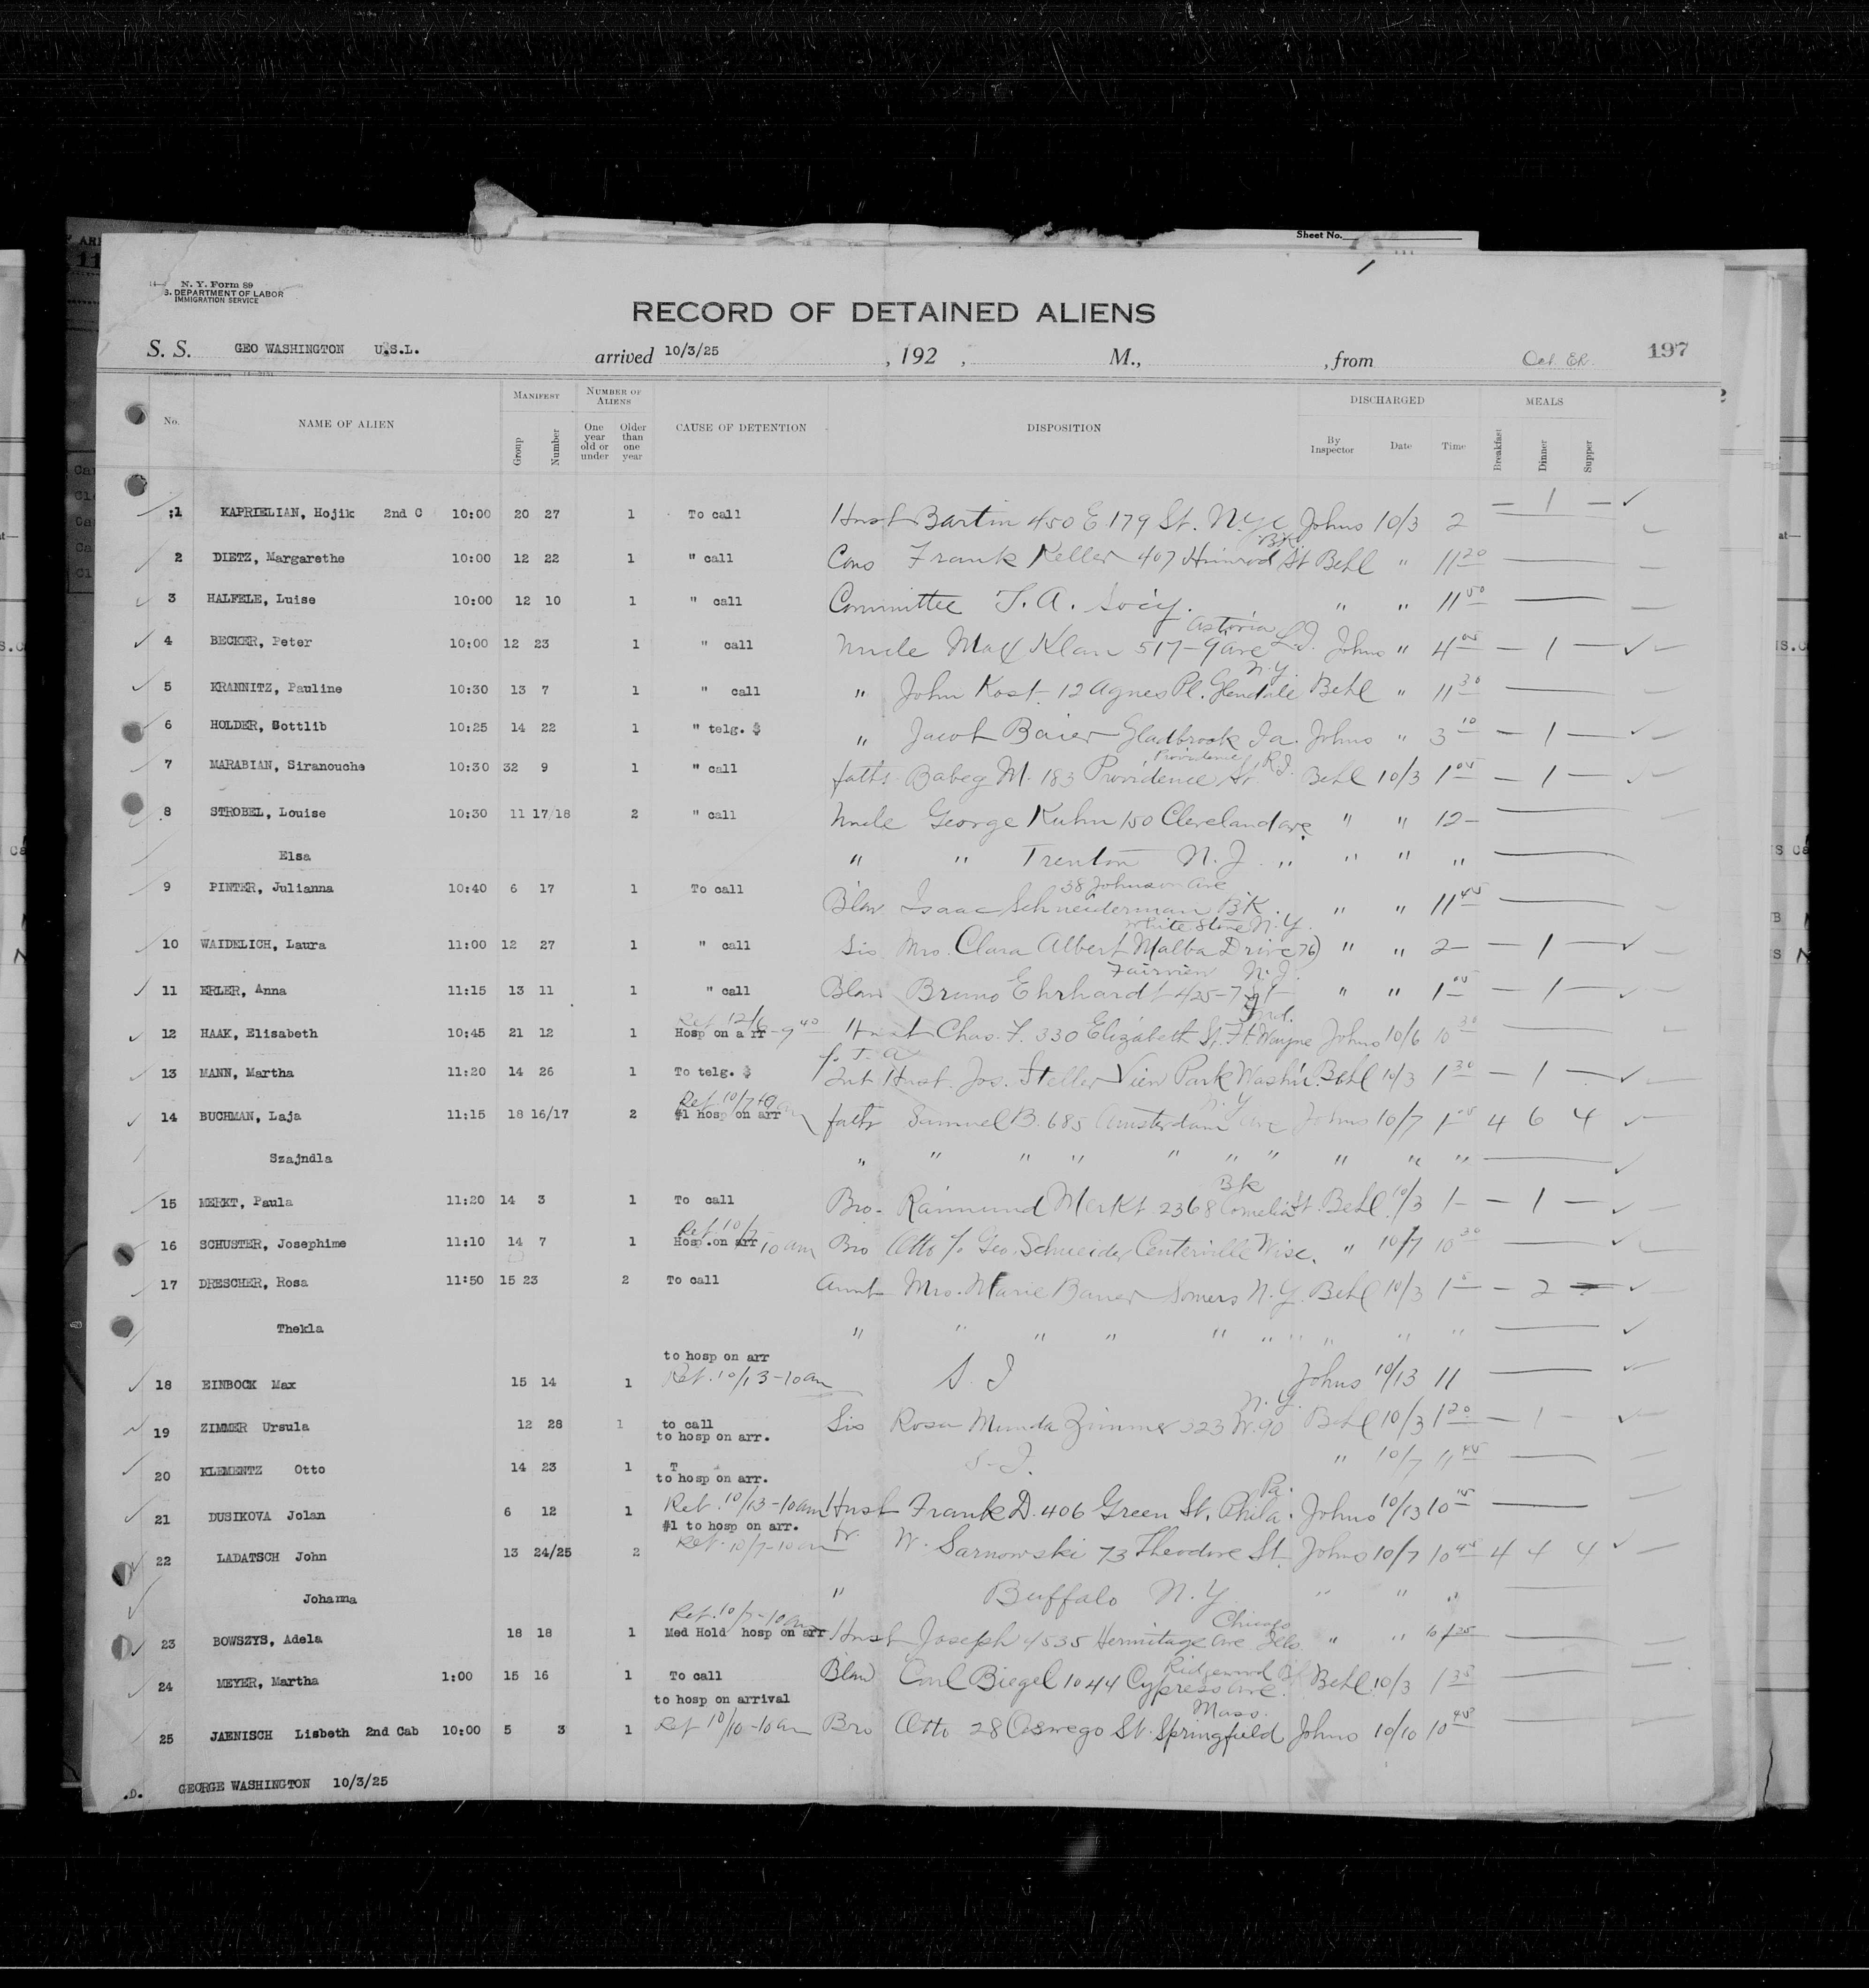 Sheet No.
N. Y. Form 89
S. DEPARTMENT OF LABOR
IMMIGRATION SERVICE
RECORD OF DETAINED ALIENS
S. S. GEO WASHINGTON U.S.L. arrived 10/3/25, 192 , M., , from 197
No. NAME OF ALIEN MANIFEST Group Number NUMBER OF ALIENS One year old or under Older than one year CAUSE OF DETENTION DISPOSITION DISCHARGED By Inspector Date Time MEALS Breakfast Dinner Supper
1 KAPRIELIAN, Hojik 2nd C 10:00 20 27 1 To call Husb Bartin 450 E 179 St. N.Y.C Johns 10/3 2 — 1 — ✓
2 DIETZ, Margarethe 10:00 12 22 1 " call Cous Frank Keller 407 Himrod St Bk Behl " 11 20
3 HALFELE, Luise 10:00 12 10 1 " call Committee T. A. Socy. " " 11 50
4 BECKER, Peter 10:00 12 23 1 " call Uncle Max Klan 517-9 ave Astoria L.I. Johns " 4 05 — 1 — ✓
5 KRANNITZ, Pauline 10:30 13 7 1 " call " John Kost. 12 Agnes Pl. Glendale N.Y. Behl " 11 30
6 HOLDER, Gottlib 10:25 14 22 1 " telg. $ " Jacob Baier Gladbrook Ia. Johns " 3 10 — 1 — ✓
7 MARABIAN, Siranouche 10:30 32 9 1 " call fath. Babeg M. 183 Providence St. Providence R.I. Behl 10/3 1 05 — 1 — ✓
8 STROBEL, Louise 10:30 11 17/18 2 " call Uncle George Kuhn 150 Cleveland ave. " " 12 —
Elsa " " Trenton N. J. " " " "
9 PINTER, Julianna 10:40 6 17 1 To call Blaw Isaac Schneiderman 38 Johnson Ave BK. " " 11 45
10 WAIDELICH, Laura 11:00 12 27 1 " call Sis Mrs. Clara Albert Malba Drive 76) White Stone N.Y. " " 2 — — 1 — ✓
11 ERLER, Anna 11:15 13 11 1 " call Blaw Bruno Ehrhardt 425-7 St Fairview N.J. " " 1 05 — 1 — ✓
12 HAAK, Elisabeth 10:45 21 12 1 Hosp on a rr Husb Chas. F. 330 Elizabeth St. Ft. Wayne Ind. Johns 10/6 10 30
13 MANN, Martha 11:20 14 26 1 To telg. $ Int Husb. Jos. Steller View Park Wash'n. Behl 10/3 1 30 — 1 — ✓
14 BUCHMAN, Laja 11:15 18 16/17 2 #1 hosp on arr Ret 10/7 fath Samuel B. 685 Amsterdam Ave N.Y. Johns 10/7 1 05 4 6 4 ✓
Szajndla " " " " " " " " " " ✓
15 MERKT, Paula 11:20 14 3 1 To call Bro. Raimund Merkt 2368 Cornelia St. Bk Behl. 10/3 1 — — 1 — ✓
16 SCHUSTER, Josephime 11:10 14 7 1 Hosp.on arr Ret. 10/7 10 am Bro Otto c/o Geo. Schneider Centerville Wisc. " 10/7 10 30
17 DRESCHER, Rosa 11:50 15 23 2 To call Aunt Mrs. Marie Bauer Somers N.Y. Behl 10/3 1 — 2 — ✓
Thekla " " " " " " " " " " ✓
18 EINBOCK Max 15 14 1 to hosp on arr Ret. 10/13-10am S. I Johns 10/13 11
19 ZIMMER Ursula 12 28 1 to call Sis Rosa Munda Zimmer 323 W. 90 N.Y. Behl 10/3 1 20 — 1 — ✓
20 KLEMENTZ Otto 14 23 1 to hosp on arr. T S-I. " 10/7 11 45
21 DUSIKOVA Jolan 6 12 1 to hosp on arr. Ret. 10/13-10am Husb Frank D. 406 Green St. Phila. Pa. Johns 10/13 10 15
22 LADATSCH John 13 24/25 2 #1 to hosp on arr. Ret. 10/7-10am fr. W. Sarnowski 73 Theodore St. Johns 10/7 10 45 4 4 4 ✓
Johanna " Buffalo N.Y " " "
23 BOWSZYS, Adela 18 18 1 Med Hold hosp on arr Ret. 10/7-10am Husb Joseph 4535 Hermitage Ave Chicago Ills. " "
24 MEYER, Martha 1:00 15 16 1 To call Blaw Carl Biegel 1044 Cypress Ave. Ridgewood Behl 10/3 1 35
25 JAENISCH Lisbeth 2nd Cab 10:00 5 3 1 to hosp on arrival Ret 10/10-10am Bro Otto 28 Oswego St. Springfield Mass. Johns 10/10 10 45
.D. GEORGE WASHINGTON 10/3/25